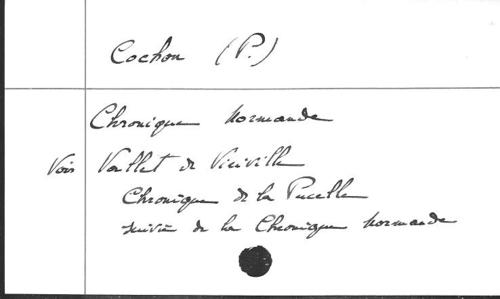 Cochon (P.)
Chronique Normande
Voir Vallet de Viriville
Chronique de la Pucelle
suivie de la Chronique Normande